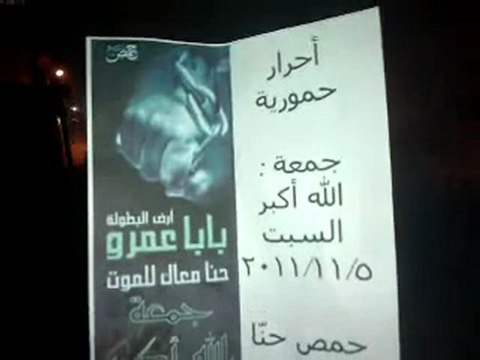 أحرار
حمورية
جمعة :
الله أكبر
السبت
٢٠١١/١١/٥
حمص حنّا
حمص
أرض البطولة
بابا عمرو
حنا معاك للموت
جمعة
الله أكبر